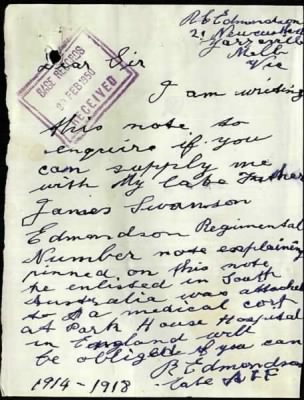 R E Edmondson
21 Newcastle St
Yarraville
Melb
Vic
Dear Sir
BASE RECORDS
FEB 1950
RECEIVED
I am writing
this note to
enquire if you
can supply me
with My late Father
James Swanson
Edmondson Regimental
Number note explaining
pinned on this note
he enlisted in South
Australia was attached
to a medical
at Park House Hospital
in England will
be obliged if you can
R Edmondson
late AIF
1914-1918